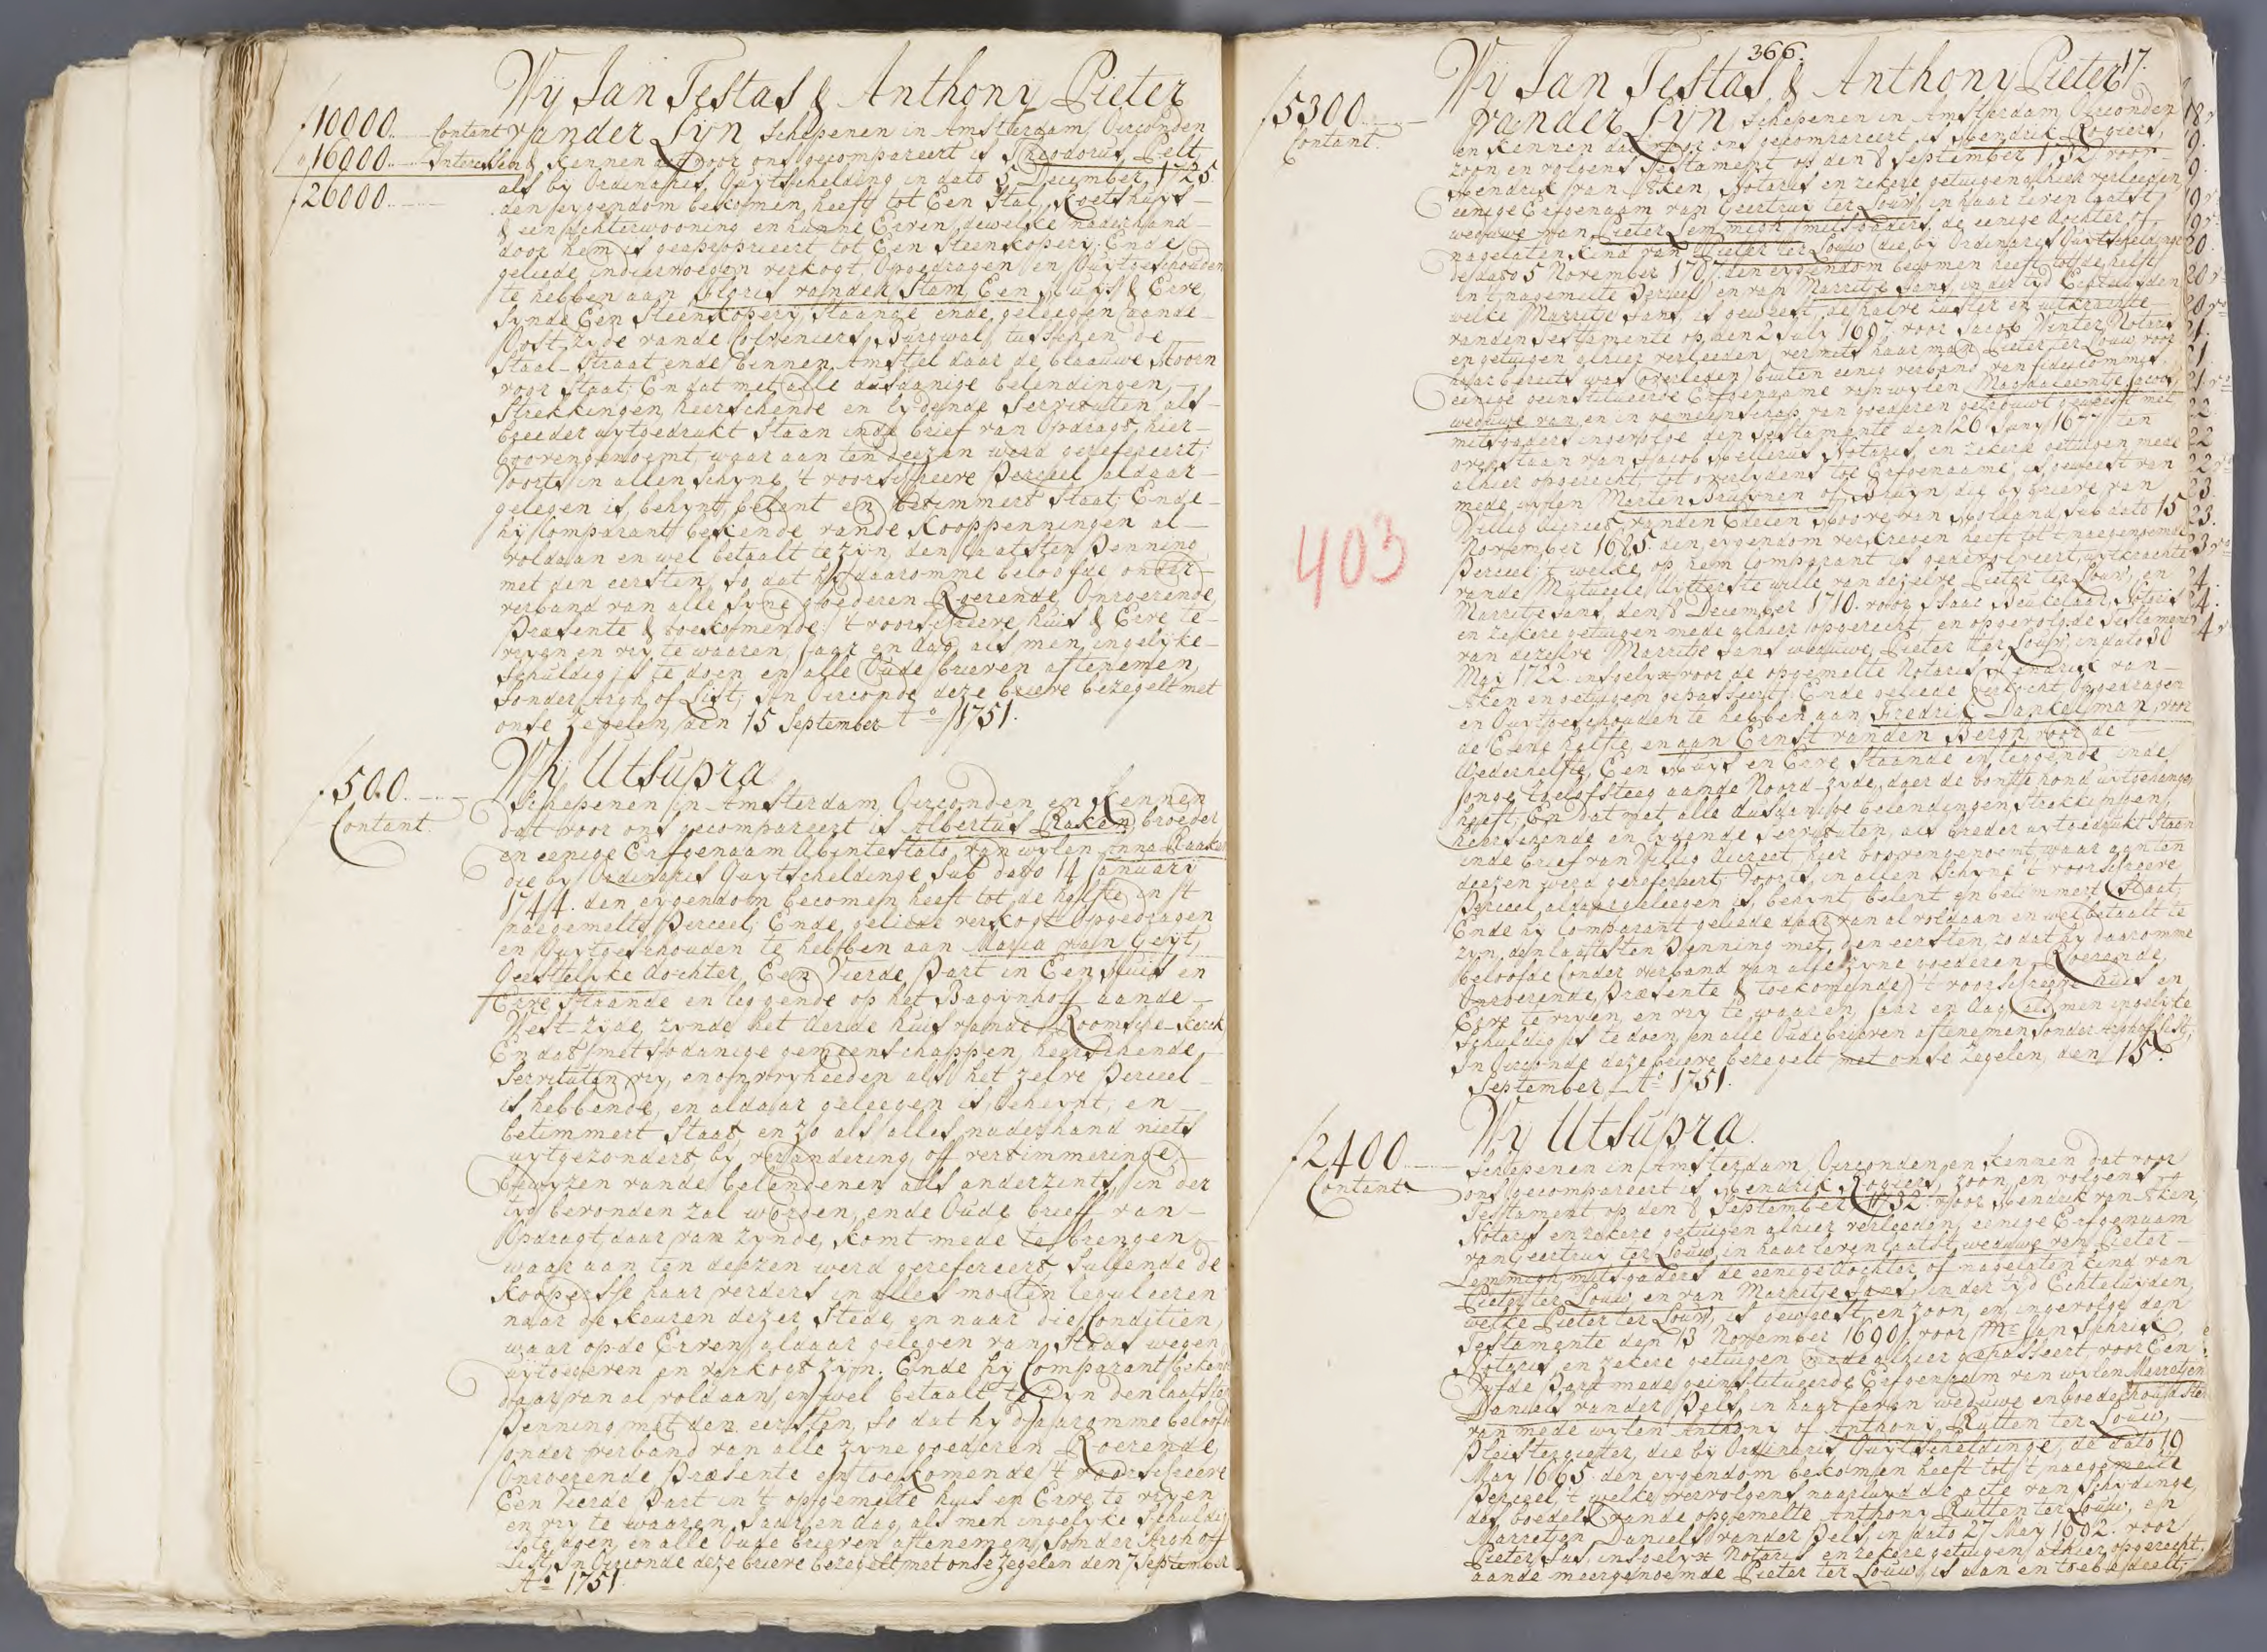 Wÿ Jan Testas & Anthonÿ Pieter
ƒ 10000.. Contant vander Lÿn Schepenen in Amsterdam Oirconden
" 16000.. Interessen & Kennen dat voor ons gecompareert is Theodorus Pelt
ƒ 26000.. als by Ordinaris Quytschelding in dato 5 December 1725
den eygendom bekomen heeft tot Een Stal, Koetshuys
& een achterwooning en hunne Erven, dewelke naderhand
door hem is geapproprieert tot Een Steenkopery; Ende
geliede indiervoegen verkogt, Opgedragen en Quytgeschouden
te hebben aan Joris vander Stam, Een Huys & Erve,
Synde Een Steenkopery, Staande ende geleegen aande
Oost-zyde vande Cloveniers Burgwal, tusschen de
Staal-Straat ende binnen Amstel daar de blaauwe Moon
voor Staat; En dat met alle dusdanige belendingen,
Strekkingen, heerschende en lydende Servituten als
breeder uytgedrukt Staan inde brief van Opdragt, hier
boovengenoemt, waar aan ten deezen werd gerefereert,
Voorts in allen Schyne 't voorschreve Perceel aldaar
gelegen is, behynt, belent en betimmert Staat; Ende
hij Comparant bekende vande Kooppenningen al
voldaan en wel betaalt te zijn, den laatsten Penning
met den eersten, So dat hy daaromme beloofde onder
verband van alle Syne goederen Roerende, Onroerende,
Præsente & toekomende, 't voorschreeve huis & Erve te
vryen en vry te waaren, Jaar en dag, als men ingelyke
Schuldig is te doen, en alle Oude brieven aftenemen,
Sonder Argh of List; In Oirconde deze brieve bezegelt met
onse Zegelen, den 15 September Ao. 1751.
ƒ 500.. Wÿ Utsupra
Schepenen in Amsterdam, Oirconden en Kennen
Contant. dat voor ons gecompareert is Albertus Raken, broeder
en eenige Erfgenaam Abintestato, van wylen Anna Raaken
die by Ordinaris Quytscheldinge Sub dato 14 January
1744. den eygendom becomen heeft tot de helfte in 't
naegemelte Perceel; Ende geliede verkogt Opgedragen
en Quytgeschouden te hebben aan Maria van Geyt,
Geestelyke dochter, Een Vierde Part in Een Huis en
Erve Staande en leggende op het Bagynhoff aande
West-zijde, zynde het derde huis vande Roomsche-Kerck,
En dat met Sodanige gemeenschappen, heerschende
Servituten, vry, en onvryheeden als het zelve Perceel
is hebbende, en aldaar geleegen is, beheynt, en
betimmert Staat, en zo als alles naderhand niets
uytgezondert, by verandering, off vertimmeringe,
bewyzen vande belendenen als anderzints, in der
tyd bevonden zal worden, ende Oude brieff van
Opdragt daar van zynde, komt mede te brengen,
waar aan ten deezen werd gerefereert, Sullende de
Koopersse haar verders in alles moeten reguleeren
naar de Keuren dezer Stede, en naar die Conditien,
waar op de Erven aldaar gelegen van Stads wegen
uytgegeven en verkogt zijn. Ende hij Comparant bekende
daar van al voldaan, en wel betaalt te zyn den laatsten
Penning met den eersten, So dat hy daaromme beloofde
onder verband van alle zyne goederen Roerende,
Onroerende Præsente en toekomende 't voorschreeve
Een Vierde Part in 't opgemelte huis en Erve te vryen
en vry te waaren, Jaar en dag, als men ingelyke Schuldig
is te doen, en alle Oude brieven aftenemen, Sonder Argh off
List, In Oirconde deze brieve bezegelt met onse zegelen den 7 September
Ao. 1751.
366. 17.
Wÿ Jan Testas & Anthonÿ Pieter
ƒ 5300.. vander Lÿn, Schepenen in Amsterdam, Oirconden
Contant. en Kennen dat voor ons gecompareert is Hendrik Rogiers,
zoon en volgens Testament op den 8 September 1732 voor
Hendrik van Aken, Notaris en zekere getuigen alhier verleeden,
eenige Erfgenaam van Geertruy ter Louw, in haar leven laatst
weduwe van Pieter Lemmigh, mitsgaders, de eenige dochter of
nagelaten Kind van Pieter ter Louw, die by Ordinaris Quytscheldinge
de dato 5 November 1707. den eygendom becomen heeft tot de helft
in 't nagemelte Perceel, en van Marritje Jans, in der tyd Echteluyden,
welke Marritje Jans, is geweest de halve zuster en uitkrachte
vanden Testamente op den 2 July 1697. voor Jacob Winter, Notaris
en getuigen alhier verleeden, vermits haar man Pieter ter Louw, voor
haar bereits was overleden, buiten eenig verband van fideicommis,
eenige geinstitueerde Erfgenaame van wylen Magdaleentje Jacobs,
weduwe van, en in gemeenschap van goederen getrouwt geweest met
mitsgaders ingevolge den Testamente den 26 Juny 1677 ten
overstaan van Jacob Hellerus Notaris, en zekere getuigen mede
alhier opgerecht, tot overlydens toe Erfgenaame, is geweest van
mede wylen Marten Bruynen of Bruyn, die by brieve van
Willig decreet, vanden Edelen Hoove van Holland, Sub dato 15
November 1685. den eygendom verkregen heeft tot 't naegenoemde
Perceel, 't welke op hem Comparant is gedevolveert uytkrachte
403
vande Mutueele Uytterste wille van dezelve Pieter ter Louw, en
Marritje Jans, den 8 December 1710. voor Isaac Beukelaar, Notaris
en zekere getuigen mede alhier opgerecht, en opgevolgde Testament
van dezelve Marritje Jans weduwe, Pieter ter Louw, in dato 30
May 1722. insgelyx voor de opgemelte Notaris Hendrik van
Aken en getuigen gepasseert; Ende geliede verkocht Opgedragen
en Quytgeschouden te hebben aan, Fredrik Dankelman, voor
de Eene helfte, en aan Ernst vanden Bergh, voor de
Wederhelfte, Een Huys en Erve Staande en leggende inde
Jonge Roelofsteeg aande Noord-zyde, daar de bontte hond uytgehangen
heeft; En dat met alle dusdanige belendingen, Strekkingen,
heerschende en lydende Servituten, als breder uytgedrukt Staan
inde brief van Willig decreet, hier boovengenoemt, waar aan ten
deezen werd gerefereert, Voorts in allen Schyne 't voorschreeve
Perceel aldaar geleegen is, behynt, belent en betimmert Staat,
Ende hy Comparant geliede daar van al voldaan en wel betaalt te
zyn, den laatsten Penning met den eersten, zo dat hy daaromme
beloofde (onder verband van alle zyne goederen, Roerende,
Onroerende, Præsente & toekomende) 't voorschreeve huis en
Erve te vryen, en vry te waaren, Jaar en dag, als men ingelyke
Schuldig is te doen, en alle Oude brieven aftenemen, sonder Argh of List;
In Oirconde deze brieve bezegelt met onse Zegelen, den 15.
September Ao. 1751.
ƒ 2400.. Wÿ Utsupra.
Contant. Schepenen in Amsterdam, Oirconden en Kennen dat voor
ons gecompareert is Hendrik Rogiers, zoon, en volgens
Testament op den 8 September 1732. voor Hendrik van Aken,
Notaris en zekere getuigen alhier verleeden, eenige Erfgenaam
van Geertruy ter Louw, in haar leven laatst weduwe van Pieter
Lemmigh, mitsgaders de eenige dochter of nagelaten Kind van
Pieter ter Louw, en van Marritje Jans, in der tyd Echteluyden,
welke Pieter ter Louw, is geweest, en zoon, en ingevolge den
Testamente den 13 November 1690. voor Mr. Jan Schrik,
Notaris en zekere getuigen mede alhier gepasseert voor Een
Vyfde Part mede geinstitueerde Erfgenaam van wylen Marretjen
Daniels vander Pels, in haar leven weduwe en boedelhoudster
van mede wylen Anthony of Anthony Rutten ter Louw,
Pleistergieter, die by Ordinaris Quytscheldinge, de dato 19
May 1665. den eygendom bekomen heeft tot 't naegemelte
Perceel, 't welke vervolgens naar luyd de acte van Scheydinge
des boedels vande opgemelte Anthony Rutten ter Louw, en
Marretjen Daniels vander Pels, in dato 27 May 1692. voor
Pieter Sas, insgelyx Notaris en zekere getuigen alhier opgerecht,
aande meergenoemde Pieter ter Louw, is aan en toebedeelt;